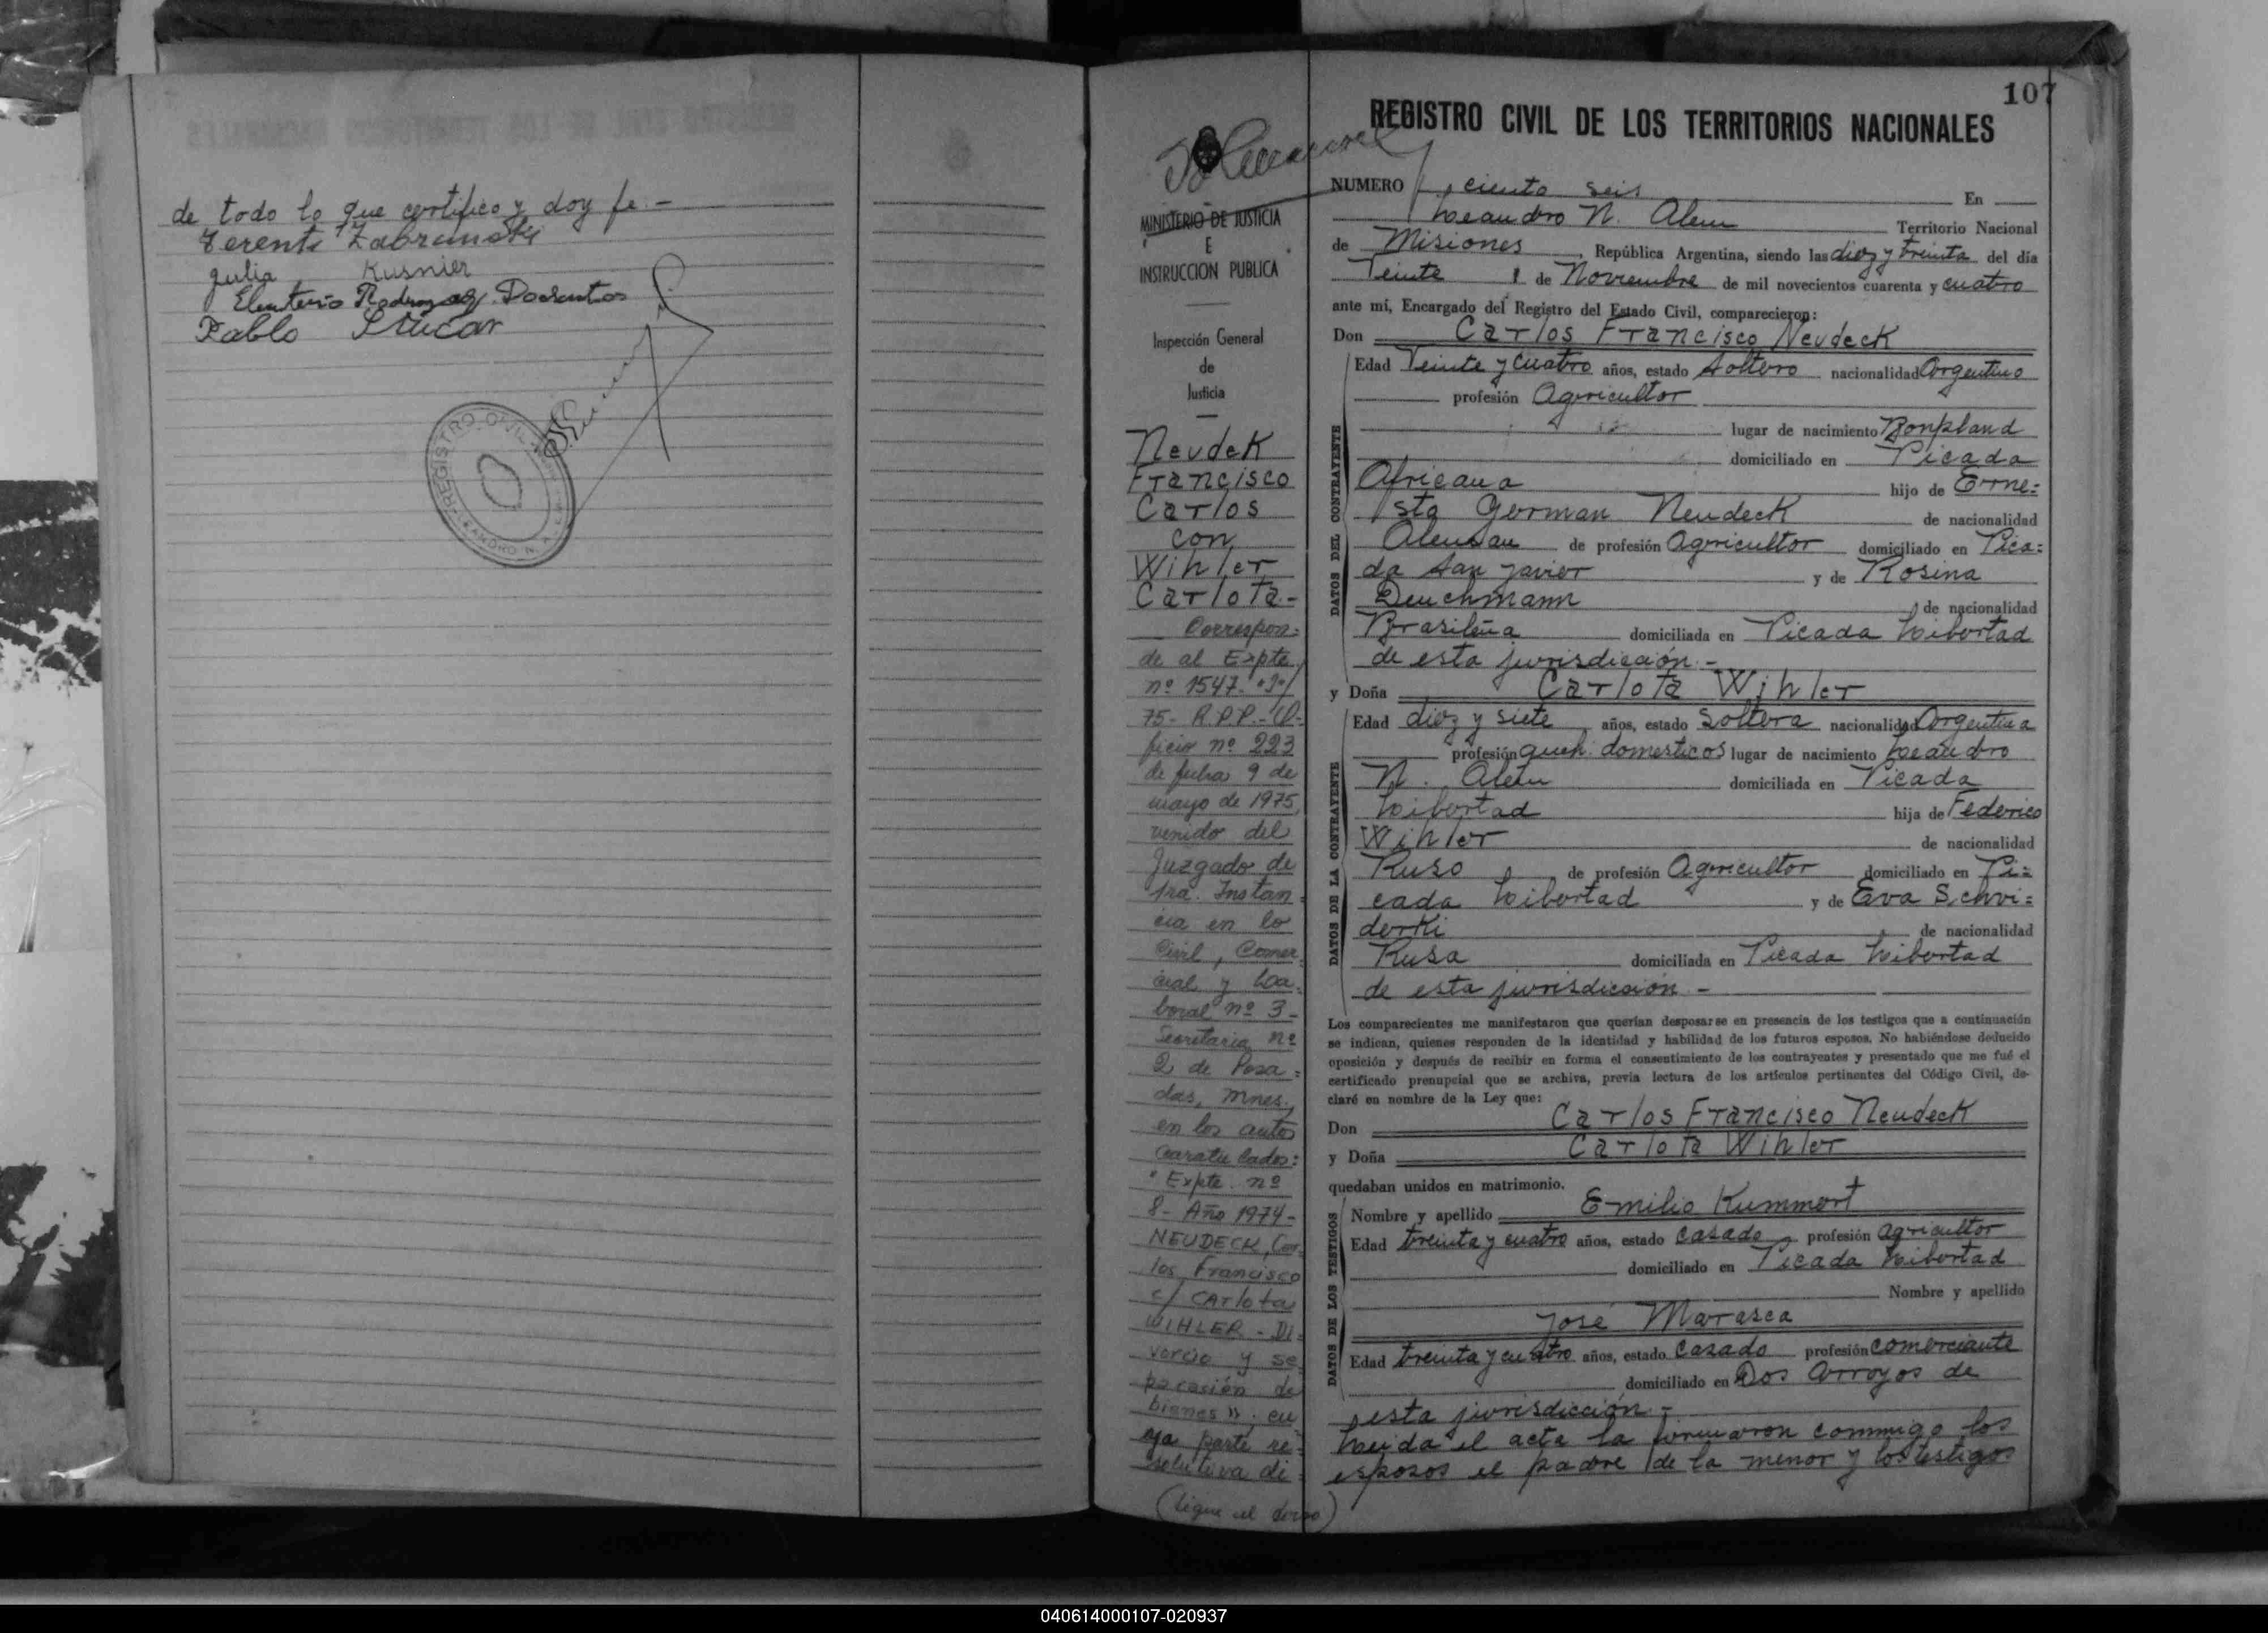 de todo lo que certifico y doy fe.-
Julia Kusnier
Pablo
REGISTRO CIVIL
LEANDRO N. A
107
REGISTRO CIVIL DE LOS TERRITORIOS NACIONALES
NUMERO ciento seis En
Leandro N. Alem Territorio Nacional
de Misiones, República Argentina, siendo las diez y treinta del día
Veinte de Noviembre de mil novecientos cuarenta y cuatro
ante mí, Encargado del Registro del Estado Civil, comparecieron:
Don Carlos Francisco Neudeck
Edad Veinte y cuatro años, estado soltero nacionalidad Argentino
profesión Agricultor
lugar de nacimiento Bonpland
domiciliado en Picada
Africana hijo de Erne=
sto German Neudeck de nacionalidad
Aleman de profesión Agricultor domiciliado en Pica=
da San Javier y de Rosina
Deuchmann de nacionalidad
Brasileña domiciliada en Picada Libertad
de esta jurisdicción.-
y Doña Carlota Wihler
Edad diez y siete años, estado soltera nacionalidad Argentina
profesión queh. domesticos lugar de nacimiento Leandro
N. Alem domiciliada en Picada
Libertad hija de Federico
Wihler de nacionalidad
Ruso de profesión Agricultor domiciliado en Pi=
cada Libertad y de Eva Schvi=
derki de nacionalidad
Rusa domiciliada en Picada Libertad
de esta jurisdicción-
Los comparecientes me manifestaron que querían desposarse en presencia de los testigos que a continuación
se indican, quienes responden de la identidad y habilidad de los futuros esposos. No habiéndose deducido
oposición y después de recibir en forma el consentimiento de los contrayentes y presentado que me fué el
certificado prenupcial que se archiva, previa lectura de los artículos pertinentes del Código Civil, de-
claré en nombre de la Ley que:
Don Carlos Francisco Neudeck
y Doña Carlota Wihler
quedaban unidos en matrimonio.
Nombre y apellido Emilio Kummert
Edad treinta y cuatro años, estado casado profesión agricultor
domiciliado en Picada Libertad
Nombre y apellido
José Marasca
Edad treinta y cuatro años, estado casado profesión comerciante
domiciliado en Dos Arroyos de
esta jurisdicción-
Leida el acta la firmaron conmigo los
esposos el padre de la menor y los testigos
DATOS DEL CONTRAYENTE
DATOS DE LA CONTRAYENTE
DATOS DE LOS TESTIGOS
MINISTERIO DE JUSTICIA
E
INSTRUCCION PUBLICA
Inspección General
de
Justicia
Neudek
Francisco
Carlos
con
Wihler
Carlota-
Correspon=
de al Expte.
nº 1547-"J"/
75- R.P.P.- O-
ficio nº 223
de fecha 9 de
mayo de 1975,
venido del
Juzgado de
1ra. Instan=
cia en lo
Civil, Comer=
cial y La=
boral nº 3-
Secretaria nº
2 de Posa=
das, Mnes.,
en los autos
caratulados:
"Expte. nº
8- Año 1974-
NEUDECK, Car=
los Francisco
c/ CArlota
WIHLER - Di=
vorcio y se=
paración de
bienes", cu
ya parte re=
solutiva di=
(sigue al dorso)
040614000107-020937